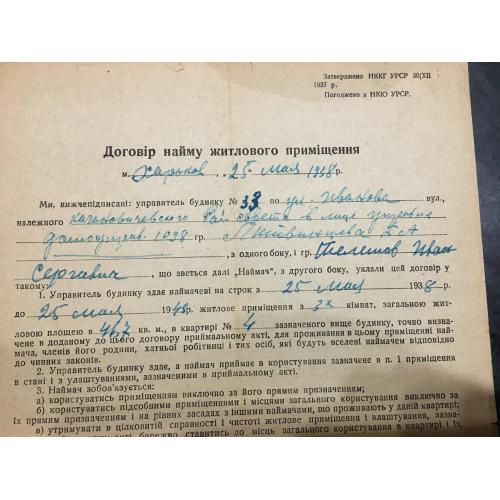 Затверджено НККГ УРСР 30/XII
1937 р.
Погоджено з НКЮ УРСР,
Договір найму житлового приміщення
м. Харьков, „25" мая 1938 р.
Ми, нижчепідписані: управитель будинку № 33 по ул. Иванова вул.,
належного Кагановичевского Рай совета в лице
1098 гр. Литвинцева
, з одного боку, і гр. Телешов Иван
Сергеевич, що зветься далі „Наймач", з другого боку, уклали цей договір у
такому:
1. Управитель будинку здає наймачеві на строк з 25 мая 1938 р.
до 25 мая 1943 р. житлове приміщення з 3х кімнат, загальною жит-
ловою площею в 46,7 кв. м., в квартирі № 4 зазначеного вище будинку, точно визна-
чене в доданому до цього договору приймальному акті, для проживання в цьому приміщенні най-
мача, членів його родини, хатньої робітниці і тих осіб, які будуть вселені наймачем відповідно
до чинних законів.
2. Управитель будинку здає, а наймач приймає в користування зазначене в п. 1 приміщення
в стані і з улаштованнями, зазначеними в приймальному акті.
3. Наймач зобов'язується:
а) користуватись приміщенням виключно за його прямим призначенням;
б) користуватись підсобними приміщеннями і місцями загального користування виключно за
їх прямим призначенням і на рівних засадах з іншими наймачами, що проживають у даній квартирі;
в) утримувати в цілковитій справності і чистоті житлове приміщення і влаштування, зазна-
акті, бережно ставитись до місць загального користування в квартирі і їх